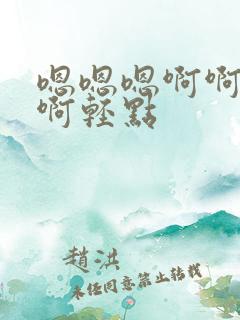 嗯嗯嗯啊啊
啊轻點
趙洪
未经同意禁止转载